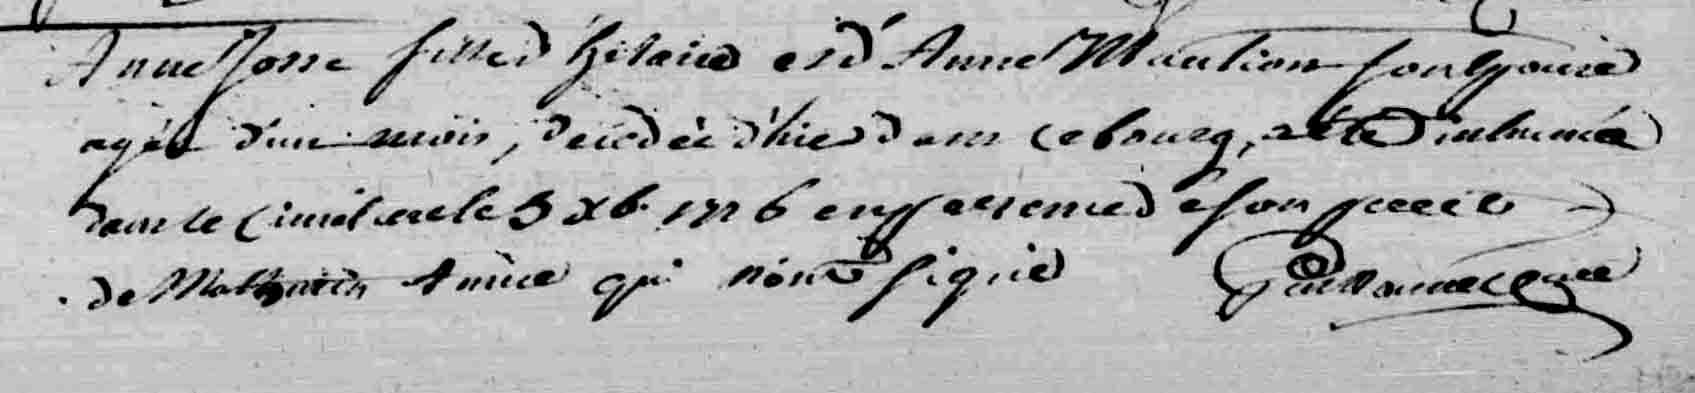 Anne Josse fille d'hilaire et d'Anne Maution son epouse
agée d'un mois, décédée d'hier dans ce bourg, a été inhumée
dans le cimetiere le 5 xbre 1776 en presence de son pere et
de Mathurin Année qui n'ont signé